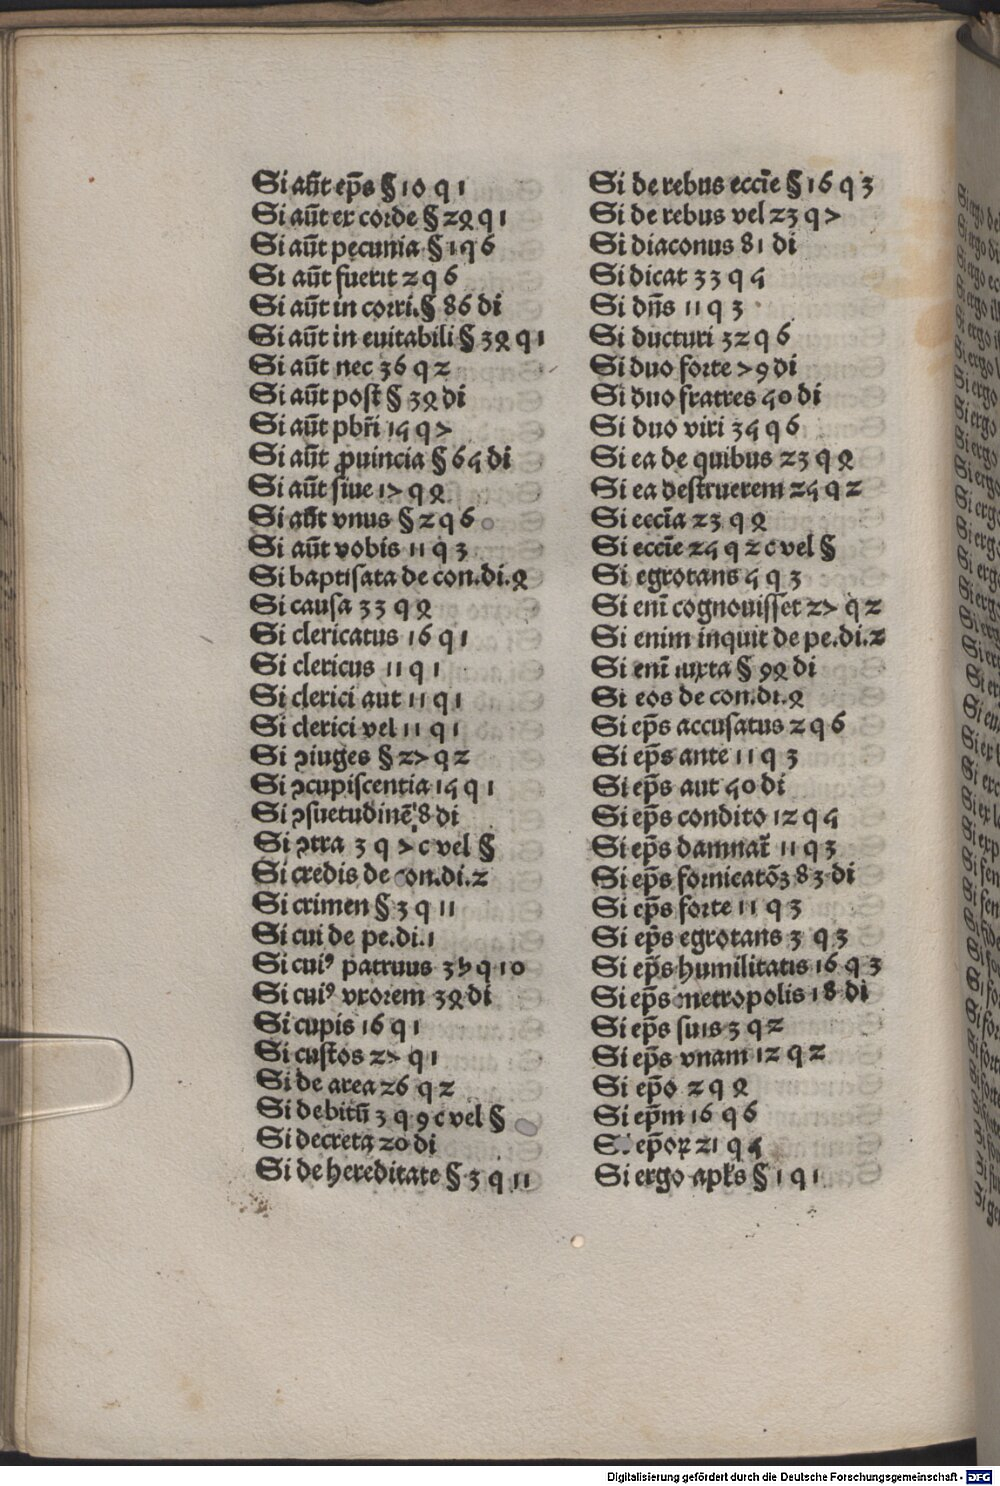 Si aūt ep̄s § 10 q 1
Si aūt ex corde § 24 q 1
Si aūt pecunia § 1 q 6
Si aūt fuerit 2 q 6
Si aūt in corri. § 86 di
Si aūt in euitabili § 34 q 1
Si aūt nec 36 q 2
Si aūt post § 34 di
Si aūt pbr̄i 15 q 7
Si aūt ꝓuincia § 65 di
Si aūt siue 17 q 4
Si aūt vnus § 2 q 6
Si aūt vobis 11 q 3
Si baptisata de con.di.4
Si causa 33 q 4
Si clericatus 16 q 1
Si clericus 11 q 1
Si clerici aut 11 q 1
Si clerici vel 11 q 1
Si ꝯiuges § 27 q 2
Si ꝯcupiscentia 15 q 1
Si ꝯsuetudinē 8 di
Si ꝯtra 3 q 7 c vel §
Si credis de con.di.2
Si crimen § 3 q 11
Si cui de pe.di.1
Si cuiꝰ patruus 35 q 10
Si cuiꝰ vxorem 34 di
Si cupis 16 q 1
Si custos 27 q 1
Si de area 26 q 2
Si debitū 3 q 9 c vel §
Si decreta 20 di
Si de hereditate § 3 q 11
Si de rebus eccīe § 16 q 3
Si de rebus vel 23 q 7
Si diaconus 81 di
Si dicat 33 q 5
Si dn̄s 11 q 3
Si ducturi 32 q 6
Si duo forte 79 di
Si duo fratres 50 di
Si duo viri 35 q 6
Si ea de quibus 23 q 4
Si ea destruerem 25 q 2
Si eccīa 23 q 4
Si eccīe 25 q 2 c vel §
Si egrotans 5 q 3
Si enī cognouisset 27 q 2
Si enim inquit de pe.di.2
Si enī iuxta § 94 di
Si eos de con.di.4
Si ep̄s accusatus 2 q 6
Si ep̄s ante 11 q 3
Si ep̄s aut 50 di
Si ep̄s condito 12 q 5
Si ep̄s damnat̄ 11 q 3
Si ep̄s fornicatōꝫ 83 di
Si ep̄s forte 11 q 3
Si ep̄s egrotans 3 q 3
Si ep̄s humilitatis 16 q 3
Si ep̄s metropolis 18 di
Si ep̄s suis 3 q 2
Si ep̄s vnam 12 q 2
Si ep̄o 2 q 4
Si ep̄m 16 q 6
Si ep̄oꝝ 21 q 5
Si ergo apl̄s § 1 q 1
Digitalisierung gefördert durch die Deutsche Forschungsgemeinschaft - DFG